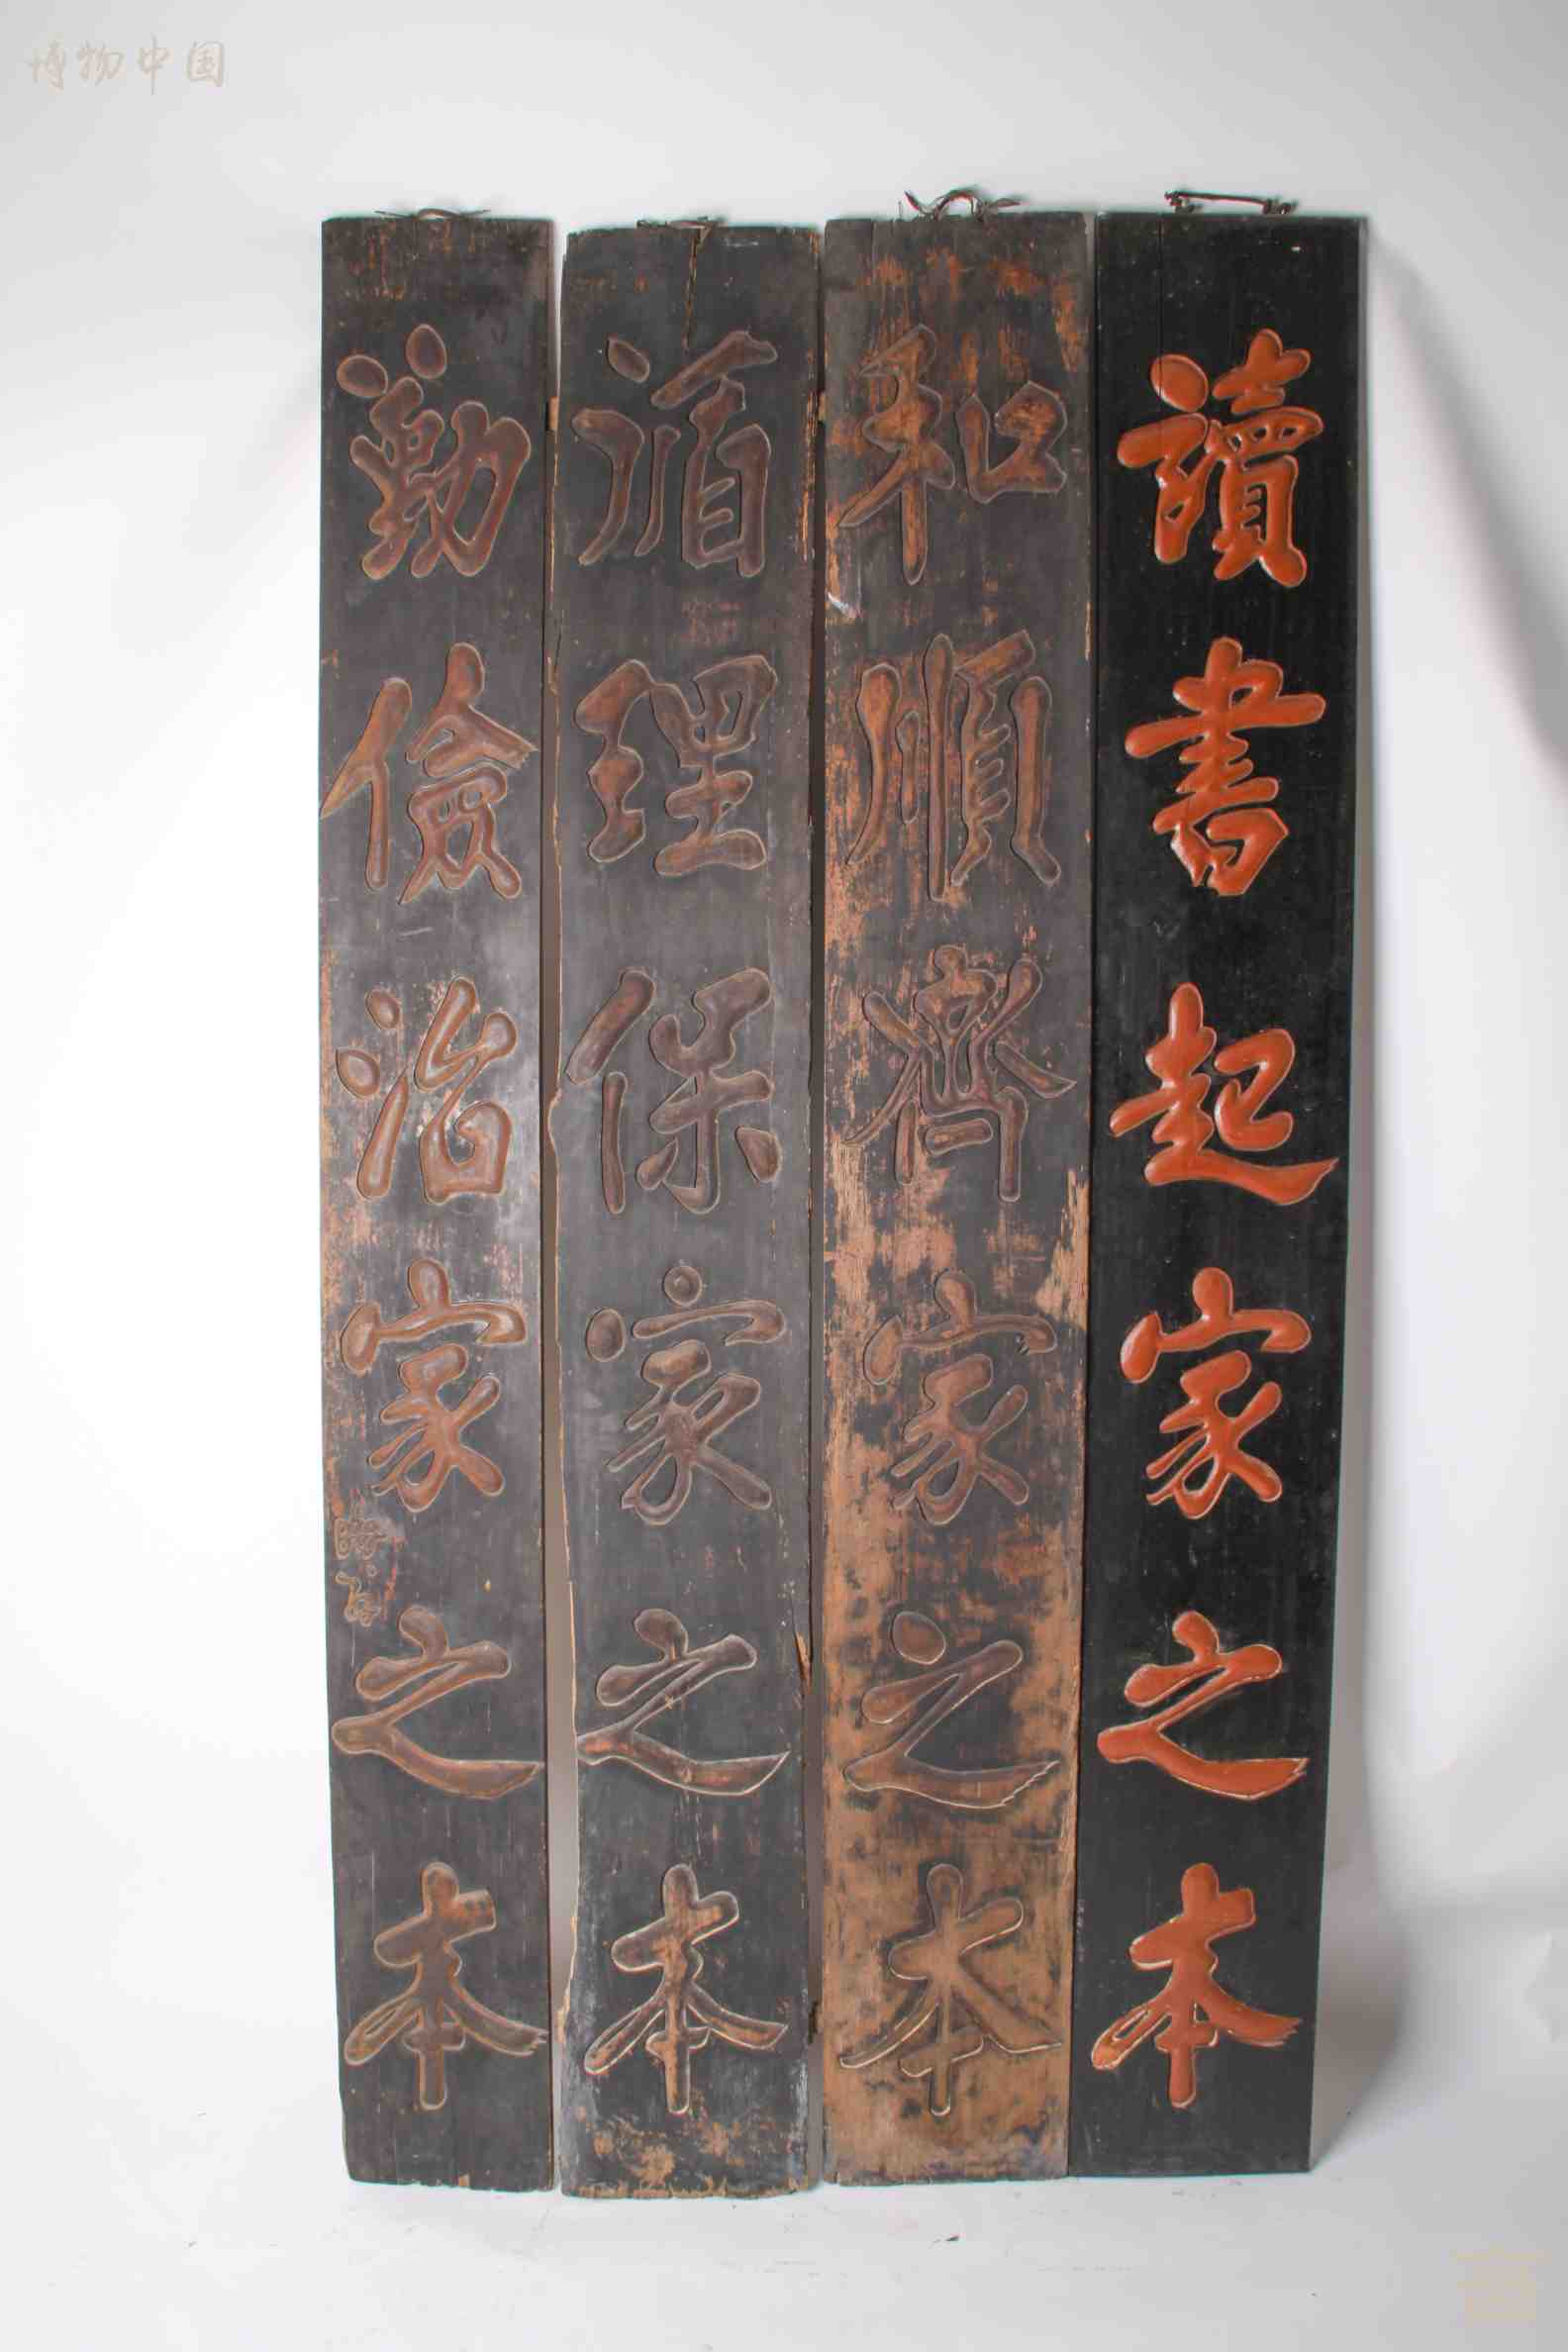 博物中国
讀書起家之本
和順齊家之本
循理保家之本
勤儉治家之本